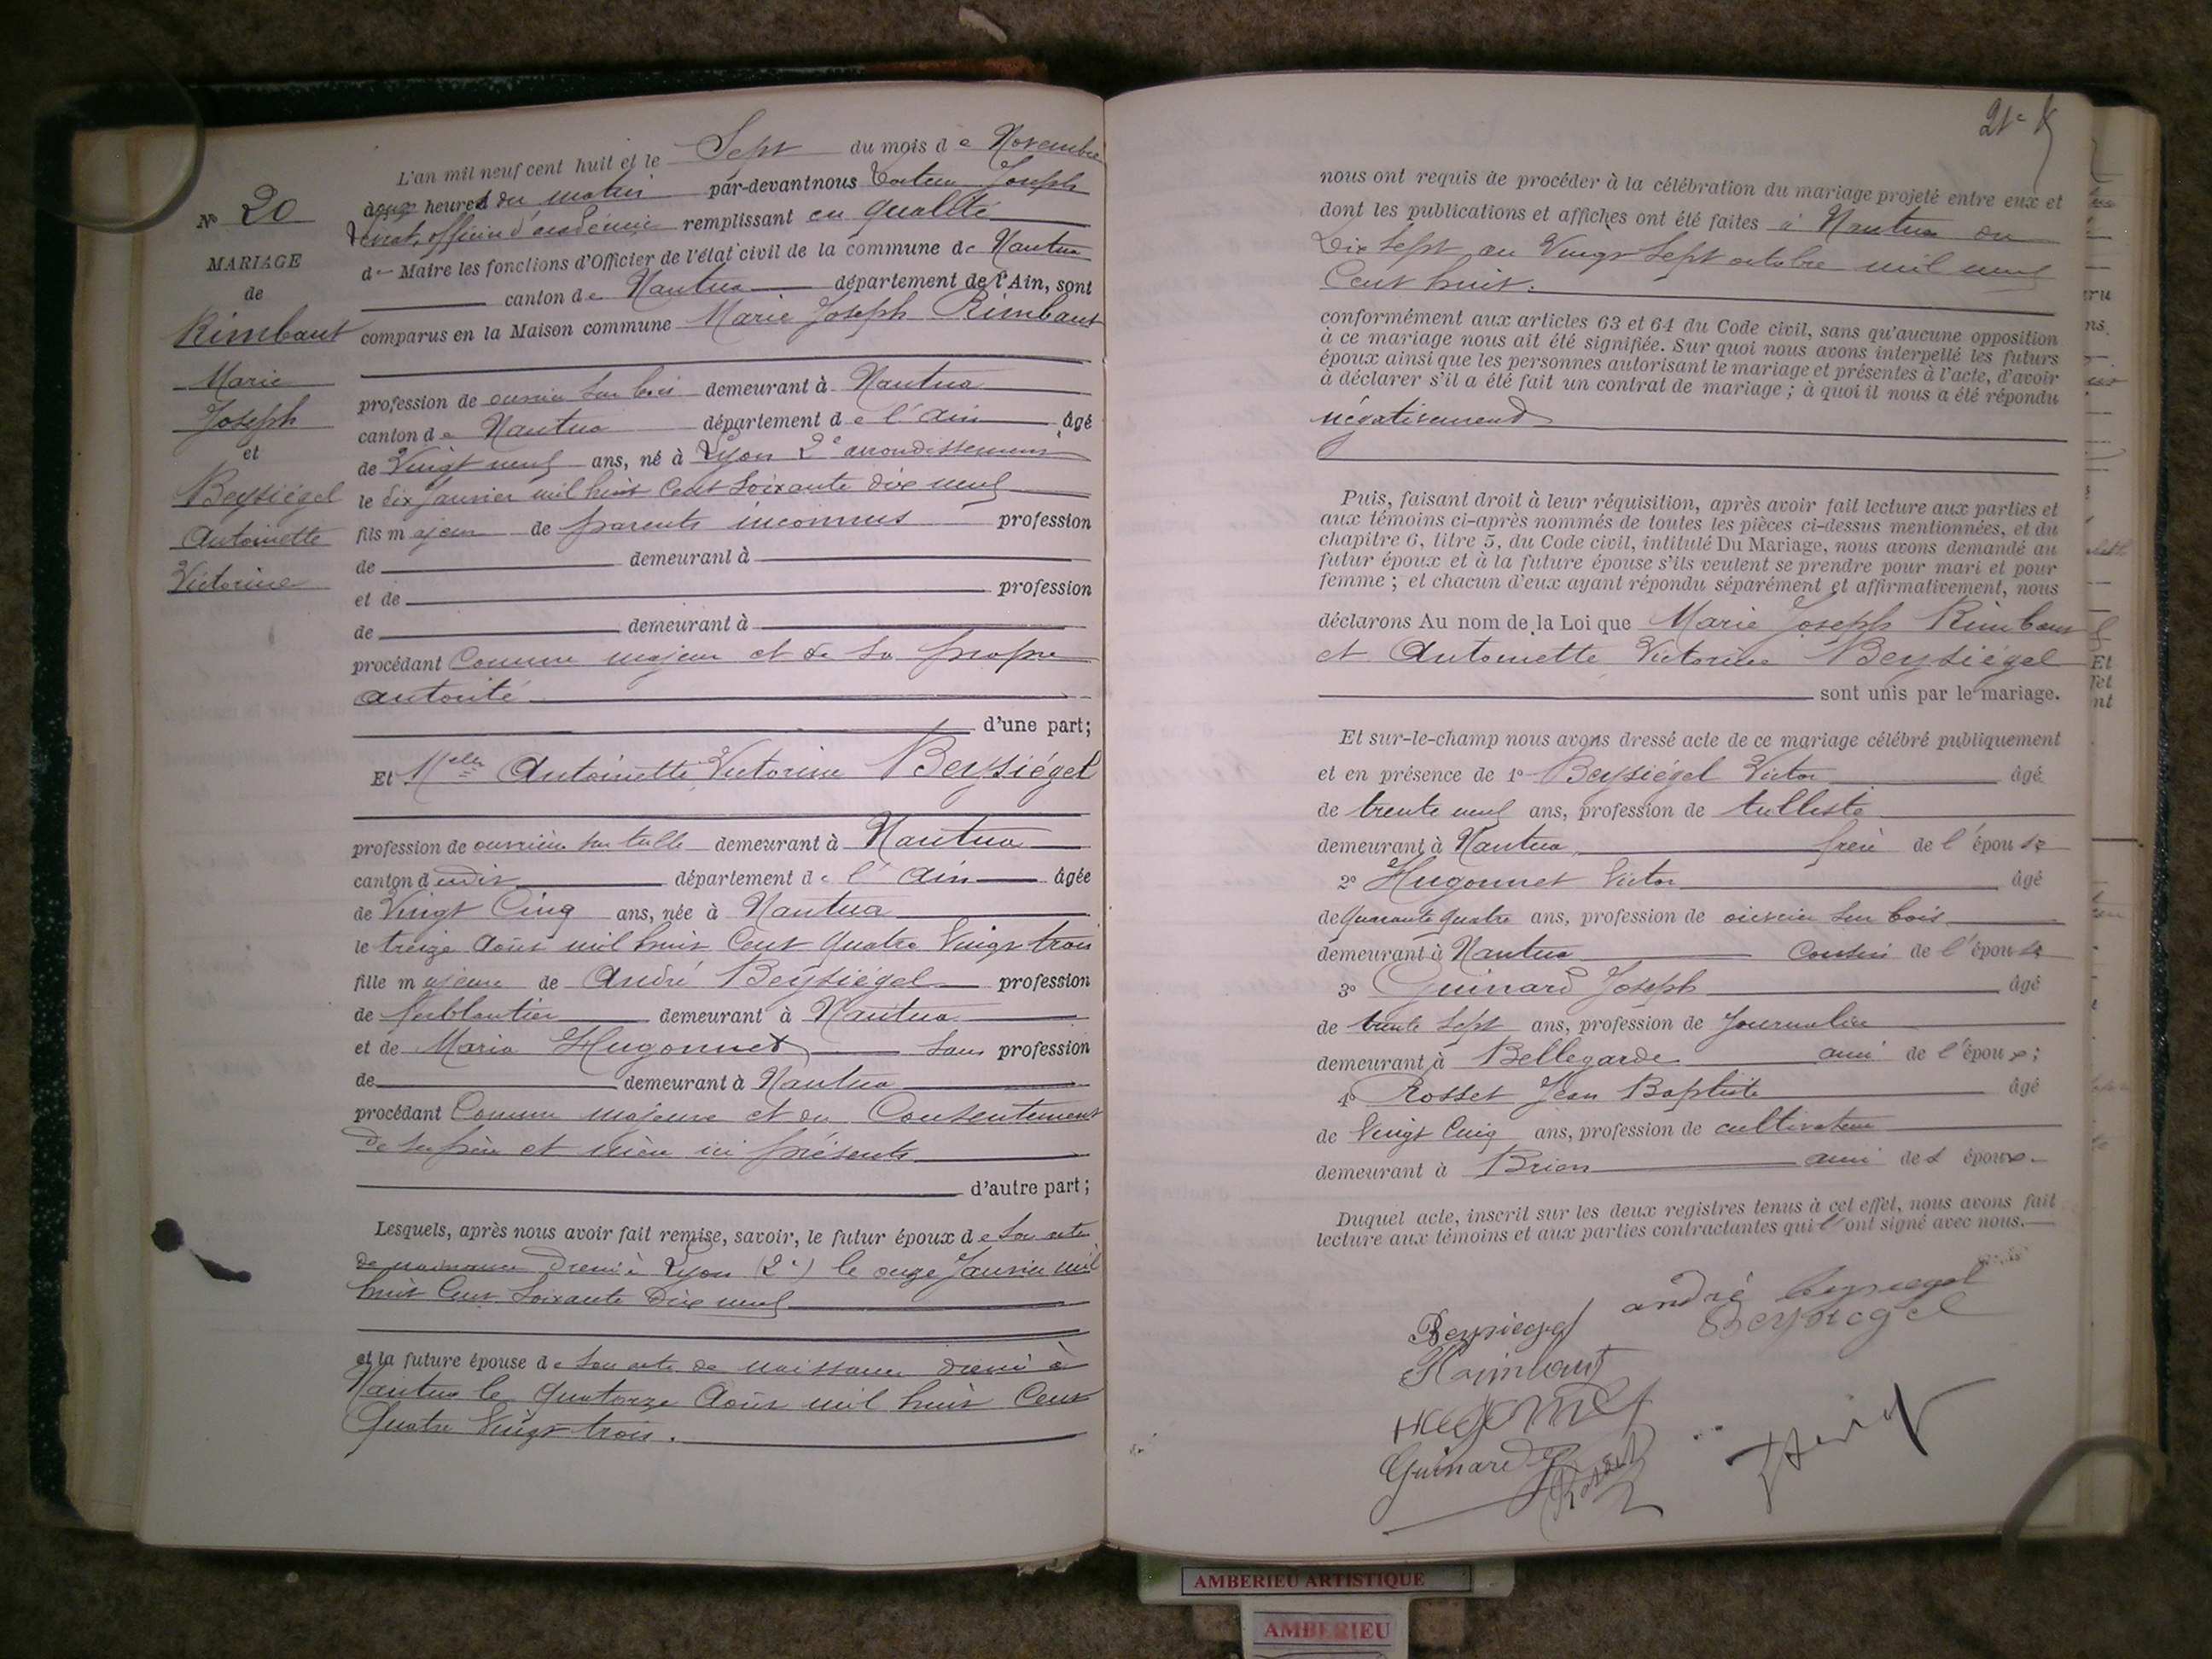 L'an mil neuf cent huit et le Sept du mois de Novembre
heures du matin par-devant nous Joseph
officier d'académie remplissant en qualité
de Maire les fonctions d'Officier de l'état civil de la commune de Nantua
canton de Nantua département de l'Ain, sont
comparus en la Maison commune Marie Joseph Rimbaut
profession de ouvrier sur bois demeurant à Nantua
canton de Nantua département de l'Ain âgé
de Vingt neuf ans, né à Lyon 2e arrondissement
le dix Janvier mil huit Cent Soixante dix neuf
fils majeur de parents inconnus profession
de demeurant à
et de profession
de demeurant à
procédant Comme majeur et de sa propre
autorité
d'une part;
Et Melle Antoinette Victorine Beysiégel
profession de ouvrière sur tulle demeurant à Nantua
canton dudit département de l'Ain âgée
de Vingt Cinq ans, née à Nantua
le treize Août mil huit Cent quatre Vingt trois
fille majeure de André Beysiégel profession
de ferblantier demeurant à Nantua
et de Maria Hugonnet Sans profession
de demeurant à Nantua
procédant Comme majeure et du Consentement
de ses père et mère ici présents
d'autre part;
Lesquels, après nous avoir fait remise, savoir, le futur époux de Son acte
de naissance Dressé à Lyon (2e) le onze Janvier mil
huit Cent Soixante Dix neuf
et la future épouse de Son acte de naissance dressé à
Nantua le Quatorze Août mil huit Cent
Quatre Vingt trois.
No 20
MARIAGE
de
Rimbaut
Marie
Joseph
et
Beysiégel
Antoinette
Victorine
21e
nous ont requis de procéder à la célébration du mariage projeté entre eux et
dont les publications et affiches ont été faites à Nantua du
Dix Sept au Vingt Sept octobre mil neuf
Cent huit.
conformément aux articles 63 et 64 du Code civil, sans qu'aucune opposition
à ce mariage nous ait été signifiée. Sur quoi nous avons interpellé les futurs
époux ainsi que les personnes autorisant le mariage et présentes à l'acte, d'avoir
à déclarer s'il a été fait un contrat de mariage; à quoi il nous a été répondu
négativement
Puis, faisant droit à leur réquisition, après avoir fait lecture aux parties et
aux témoins ci-après nommés de toutes les pièces ci-dessus mentionnées, et du
chapitre 6, titre 5, du Code civil, intitulé Du Mariage, nous avons demandé au
futur époux et à la future épouse s'ils veulent se prendre pour mari et pour
femme; et chacun d'eux ayant répondu séparément et affirmativement, nous
déclarons Au nom de la Loi que Marie Joseph Rimbaut
et Antoinette Victorine Beysiégel
sont unis par le mariage.
Et sur-le-champ nous avons dressé acte de ce mariage célébré publiquement
et en présence de 1o Beysiégel Victor âgé
de trente neuf ans, profession de tulliste
demeurant à Nantua, frère de l'épouse
2o Hugonnet Victor âgé
de Quarante quatre ans, profession de ouvrier sur bois
demeurant à Nantua Cousin de l'épouse
3o Guinard Joseph âgé
de trente Sept ans, profession de Journalier
demeurant à Bellegarde ami de l'époux;
4o Rosset Jean Baptiste âgé
de Vingt Cinq ans, profession de cultivateur
demeurant à Brion ami des époux.
Duquel acte, inscrit sur les deux registres tenus à cet effet, nous avons fait
lecture aux témoins et aux parties contractantes qui l'ont signé avec nous.
andré beysiegel
Beysiegel Beysiegel
Raimbaut
Hugonnet
Guinard
Rosset
AMBERIEU ARTISTIQUE
AMBERIEU